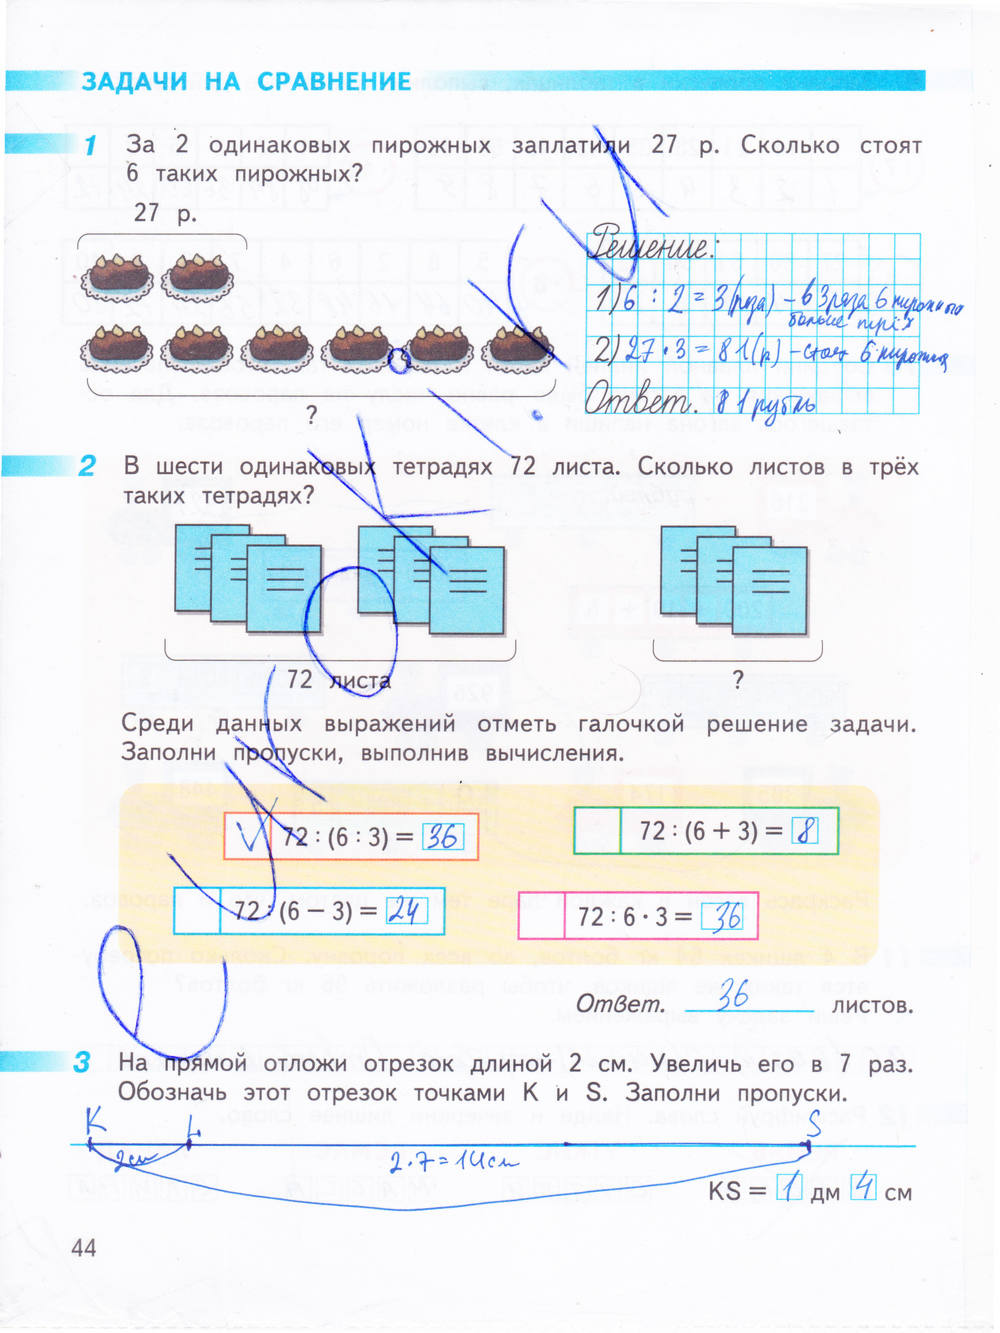 ЗАДАЧИ НА СРАВНЕНИЕ
1 За 2 одинаковых пирожных заплатили 27 р. Сколько стоят
6 таких пирожных?
27 р.
?
Решение:
1) 6 : 2 = 3 (раза) – в 3 раза 6 пирожных
больше трёх
2) 27 · 3 = 81 (р) – стоят 6 пирожных
Ответ. 81 рубль
2 В шести одинаковых тетрадях 72 листа. Сколько листов в трёх
таких тетрадях?
72 листа
?
Среди данных выражений отметь галочкой решение задачи.
Заполни пропуски, выполнив вычисления.
72 : (6 : 3) = 36
72 : (6 + 3) = 8
72 : (6 − 3) = 24
72 : 6 · 3 = 36
Ответ. 36 листов.
3 На прямой отложи отрезок длиной 2 см. Увеличь его в 7 раз.
Обозначь этот отрезок точками K и S. Заполни пропуски.
K L S
2см
2·7=14см
KS = 1 дм 4 см
44